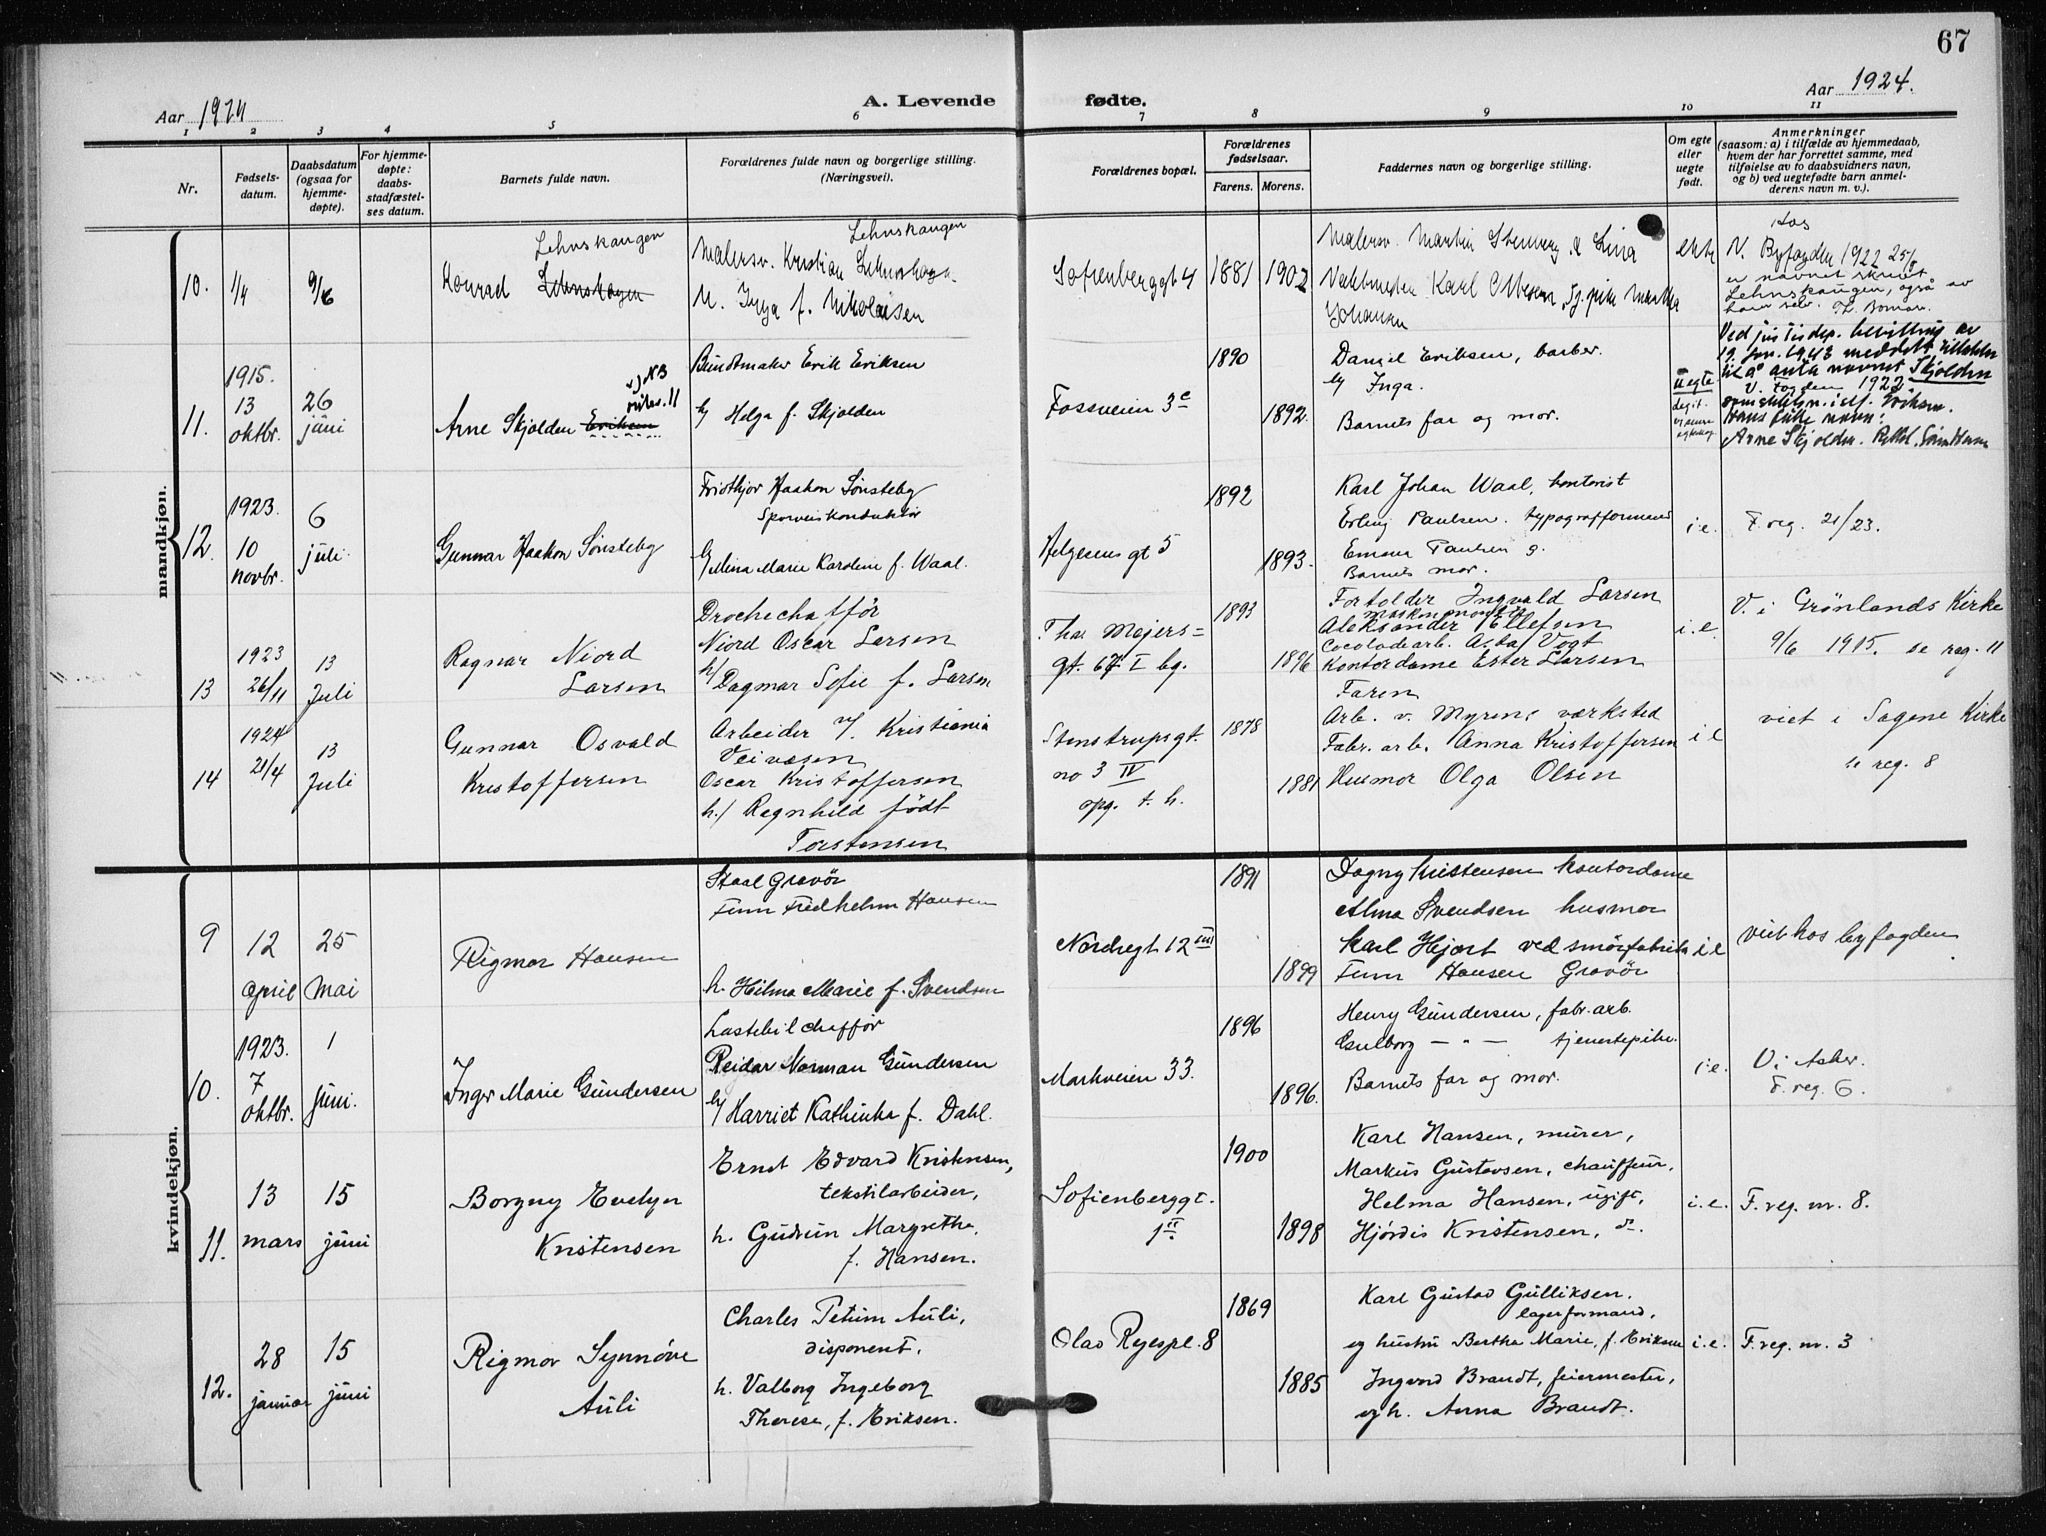 67
Aar 1924
A. Levende fødte.
Aar 1924.
1 2 3 4 5 6 7 8 9 10 11
Nr.
Fødsels-
datum.
Daabsdatum
(ogsaa for
hjemme-
døpte).
For hjemme-
døpte:
daabs-
stadfæstel-
ses datum.
Barnets fulde navn.
Forældrenes fulde navn og borgerlige stilling.
(Næringsvei).
Forældrenes bopæl.
Forældrenes
fødselsaar.
Farens. Morens.
Faddernes navn og borgerlige stilling.
Om egte
eller
uegte
født.
Anmerkninger
(saasom: a) i tilfælde av hjemmedaab,
hvem der har forrettet samme, med
tilføielse av to daabsvidners navn,
og b) ved uegtefødte barn anmel-
derens navn m. v.).
mandkjøn.
10.
1/4
9/6
Lehnskaugen
Konrad Lehnshagen
Lehnskaugen
Malersv. Kristian Lehnshagen
Inga f. Nikolaisen
Sofienberggt 4
1881 1902
Malersv. Martin & Lina
Karl pike Martha
Johansen
ekte
hos
V. Byfogden 1922 25/8
er navnet skrevet
Lehnskaugen, også av
ham selv.
11.
1915.
13
oktbr.
26
juni
Arne Skjolden Eriksen
NB
Buntmaker Erik Eriksen
h/ Helga f. Skjolden
Fossveien 3c
1890
1892.
Daniel Eriksen, barber.
h/ Inga.
Barnets far og mor.
uegte
Ved justisdep. bevilling av
19. jan. 1943 meddelt tillatelse
til å anta navnet Skjolden
V. Fogden 1922
navn:
Arne Skjolden.
12.
1923.
10
novbr.
6
juli
Gunnar Haakon Sønsteby
Fridthjov Haakon Sønsteby
Sporveiskonduktør
h/ Mina Marie Karoline f. Waal.
Helgesens gt 5
1892
1893.
Karl Johan Waal, kontorist
Erling Paulsen. typografformand
Emma Paulsen g.
Barnets mor.
i.e.
F. reg. 21/23.
13
1923
26/11
13
Juli
Ragnar Niord
Larsen
Drochechaffør
Niord Oscar Larsen
h/ Dagmar Sofie f. Larsen
Thv. Mejers=
gt. 67 I bg.
1893
1896
Fortolder Ingvald Larsen
Maskinmontør
Aleksander Ellefsen
Cocoladearb. Asta Vogt
Kontordame Ester Larsen
Faren
i.e.
V. i Grønlands Kirke
9/6 1915. se reg. 11
14
1924
21/4
13
Juli
Gunnar Osvald
Kristoffersen
Arbeider v/ Kristiania
Veivæsen
Oscar Kristoffersen
h./ Ragnhild født
Torstensen
Stenstrupsgt.
no 3 IV
opg. t. h.
1878
1881
Arb. v. Myrens værksted
Fabr. arb. Anna Kristoffersen
Husmor Olga Olsen
i e
viet i Sagene Kirke
se reg. 8
kvindekjøn.
9
12
april
25
mai
Rigmor Hansen
Staal Gravör
Finn Fredhelm Hansen
h. Hilma Marie f. Svendsen
Nordregt 12 III
1891
1899
Dagny Kristensen kontordame
Alma Svendsen husmor
Karl Hjort ved smörfabrik
Finn Hansen Gravör
i e
viet hos byfogden
10.
1923.
7
oktbr.
1
juni.
Inger Marie Gundersen
Lastebilchaffør
Reidar Norman Gundersen
h/ Harriet Kathinka f. Dahl.
Markveien 33.
1896
1896.
Henry Gundersen, fabr. arb.
Gulborg — „ — tjenestepike.
Barnets far og mor.
i.e.
V. i Asker.
F. reg. 6.
11.
13
mars
15
juni
Borgny Evelyn
Kristensen
Ernst Edvard Kristensen,
tekstilarbeider,
h. Gudrun Margrethe
f. Hansen.
Sofienberggt.
1 II
1900
1898
Karl Hansen, murer,
Markus Gustavsen, chauffeur,
Helma Hansen, ugift,
Hjørdis Kristensen, do.
i.e.
F. reg. nr. 8.
12.
28
januar
15
juni
Rigmor Synnøve
Auli
Charles Petum Auli,
disponent.
h. Valborg Ingeborg
Therese, f. Eriksen.
Olav Ryespl. 8
1869
1885
Karl Gustav Gulliksen.
lagerformand,
og hustru Bertha Marie, f. Eriksen
Ingvard Brandt, feiermester,
og h. Anna Brandt.
i.e.
F. reg. nr. 3